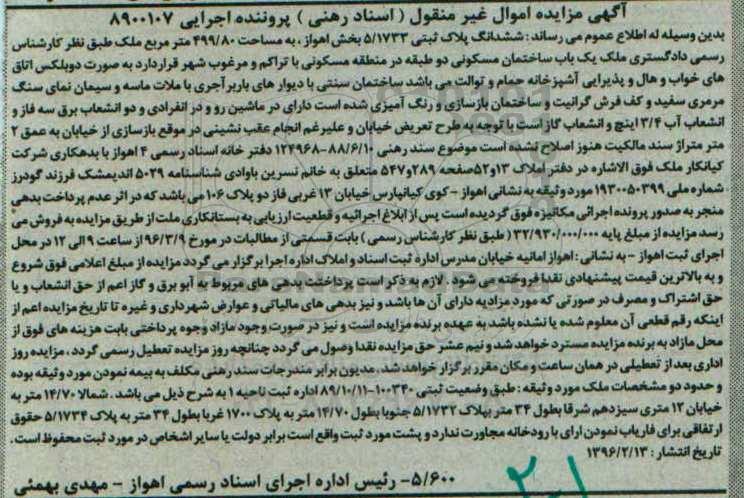 آگهی مزایده اموال غیر منقول ( اسناد رهنی ) پرونده اجرایی ۸۹۰۰۱۰۷
بدین وسیله به اطلاع عموم می رساند : ششدانگ پلاک ثبتی ۵/۱۷۳۳ بخش اهواز ، به مساحت ۴۹۹/۸۰ متر مربع ملک طبق نظر کارشناس
رسمی دادگستری ملک یک باب ساختمان مسکونی دو طبقه در منطقه مسکونی با تراکم و مرغوب شهر قرار دارد به صورت دوبلکس اتاق
های خواب و هال و پذیرایی آشپزخانه حمام و توالت می باشد ساختمان سنتی با دیوار های باربر آجری با ملات ماسه و سیمان نمای سنگ
مرمری سفید و کف فرش گرانیت و ساختمان بازسازی و رنگ آمیزی شده است دارای در ماشین رو و در انفرادی و دو انشعاب برق سه فاز و
انشعاب آب ۳/۴ اینچ و انشعاب گاز است با توجه به طرح تعریض خیابان و علیرغم انجام عقب نشینی در موقع بازسازی از خیابان به عمق ۲
متر متراژ سند مالکیت هنوز اصلاح نشده است موضوع سند رهنی ۸۸/۶/۱۰-۱۲۴۹۶۸ دفتر خانه اسناد رسمی ۴ اهواز با بدهکاری شرکت
کیانکار ملک فوق الاشاره در دفتر املاک ۱۳و۵۲صفحه ۲۸۹و۵۴۷ متعلق به خانم نسرین باوادی شناسنامه ۵۰۲۹ اندیمشک فرزند گودرز
شماره ملی ۱۹۳۰۰۵۰۳۹۹ مورد وثیقه به نشانی اهواز - کوی کیانپارس خیابان ۱۳ غربی فاز دو پلاک ۱۰۶ می باشد که در اثر عدم پرداخت بدهی
منجر به صدور پرونده اجرائی مکانیزه فوق گردیده است پس از ابلاغ اجرائیه و قطعیت ارزیابی به بستانکاری ملت از طریق مزایده به فروش می
رسد مزایده از مبلغ پایه ۳۲/۹۳۰/۰۰۰/۰۰۰ ( طبق نظر کارشناس رسمی ) بابت قسمتی از مطالبات در مورخ ۹۶/۳/۹ از ساعت ۹ الی ۱۲ در محل
اجرای ثبت اهواز - به نشانی : اهواز امانیه خیابان مدرس اداره ثبت اسناد و املاک اداره اجرا برگزار می گردد مزایده از مبلغ اعلامی فوق شروع
و به بالاترین قیمت پیشنهادی نقدا فروخته می شود . لازم به ذکر است پرداخت بدهی های مربوط به آب و برق و گاز اعم از حق انشعاب و یا
حق اشتراک و مصرف در صورتی که مورد مزایده دارای آن ها باشد و نیز بدهی های مالیاتی و عوارض شهرداری و غیره تا تاریخ مزایده اعم از
اینکه رقم قطعی آن معلوم شده یا نشده باشد به عهده برنده مزایده است و نیز در صورت وجود مازاد وجوه پرداختی بابت هزینه های فوق از
محل مازاد به برنده مزایده مسترد خواهد شد و نیم عشر حق مزایده نقدا وصول می گردد چنانچه روز مزایده تعطیل رسمی گردد ، مزایده روز
اداری بعد از تعطیلی در همان ساعت و مکان مقرر برگزار خواهد شد. مدیون برابر مندرجات سند رهنی مکلف به بیمه نمودن مورد وثیقه بوده
و حدود دو مشخصات ملک مورد وثیقه : طبق وضعیت ثبتی ۱۰۰۳۴۰-۸۹/۱۰/۱۱ اداره ثبت ناحیه ۱ به شرح ذیل می باشد . شمالا ۱۴/۷۰ متر به
خیابان ۱۲ متری سیزدهم شرقا بطول ۳۴ متر بپلاک ۵/۱۷۳۲ جنوبا بطول ۱۴/۷۰ متر به پلاک ۱۷۰۰ غربا بطول ۳۴ متر به پلاک ۵/۱۷۳۴ حقوق
ارتفاقی برای فاریاب نمودن ارای با رودخانه مجاورت ندارد و پشت مورد ثبت واقع است برابر دولت یا سایر اشخاص در مورد ثبت محفوظ است .
تاریخ انتشار : ۱۳۹۶/۲/۱۳
۵/۶۰۰- رئیس اداره اجرای اسناد رسمی اهواز - مهدی بهمئی